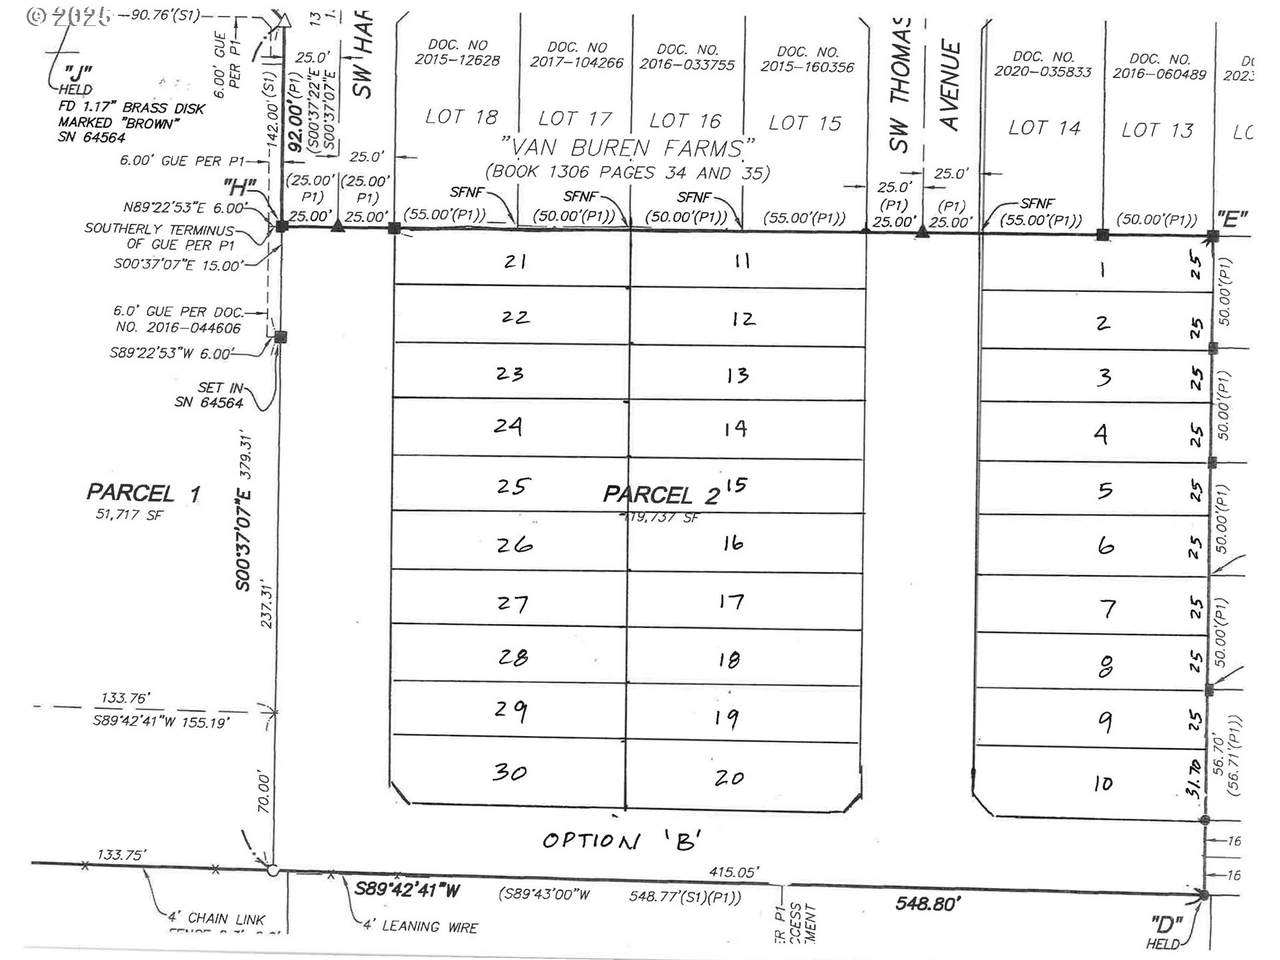 © 2025
90.76'(S1)
6.00' GUE
PER P1
142.00'(S1)
92.00'(P1)
(S00°37'22"E
S00°37'07"E
25.0'
SW HAR
"J"
HELD
FD 1.17" BRASS DISK
MARKED "BROWN"
SN 64564
6.00' GUE PER P1
"H"
N89°22'53"E 6.00'
SOUTHERLY TERMINUS
OF GUE PER P1
S00°37'07"E 15.00'
6.0' GUE PER DOC.
NO. 2016-044606
S89°22'53"W 6.00'
SET IN
SN 64564
25.0'
(25.00'
P1)
25.00'
(25.00'
P1)
25.00'
DOC. NO
2015-12628
LOT 18
DOC. NO
2017-104266
LOT 17
DOC. NO.
2016-033755
LOT 16
DOC. NO.
2015-160356
LOT 15
"VAN BUREN FARMS"
(BOOK 1306 PAGES 34 AND 35)
SFNF
SFNF
SFNF
(55.00'(P1))
(50.00'(P1))
(50.00'(P1))
(55.00'(P1))
SW THOMAS
AVENUE
25.0'
(P1)
25.00'
25.0'
(P1)
25.00'
DOC. NO.
2020-035833
LOT 14
DOC. NO.
2016-060489
LOT 13
SFNF
(55.00'(P1))
(50.00'(P1))
"E"
21
22
23
24
25
26
27
28
29
30
11
12
13
14
15
16
17
18
19
20
1
2
3
4
5
6
7
8
9
10
25
25
25
25
25
25
25
25
25
31.70
50.00'(P1)
50.00'(P1)
50.00'(P1)
50.00'(P1)
56.70'
(56.71'(P1))
PARCEL 1
51,717 SF
PARCEL 2
119,737 SF
S00°37'07"E 379.31'
237.31'
133.76'
S89°42'41"W 155.19'
70.00'
OPTION 'B'
16
16
133.75'
415.05'
S89°42'41"W
(S89°43'00"W
548.77'(S1)(P1))
548.80'
4' CHAIN LINK
4' LEANING WIRE
"D"
HELD